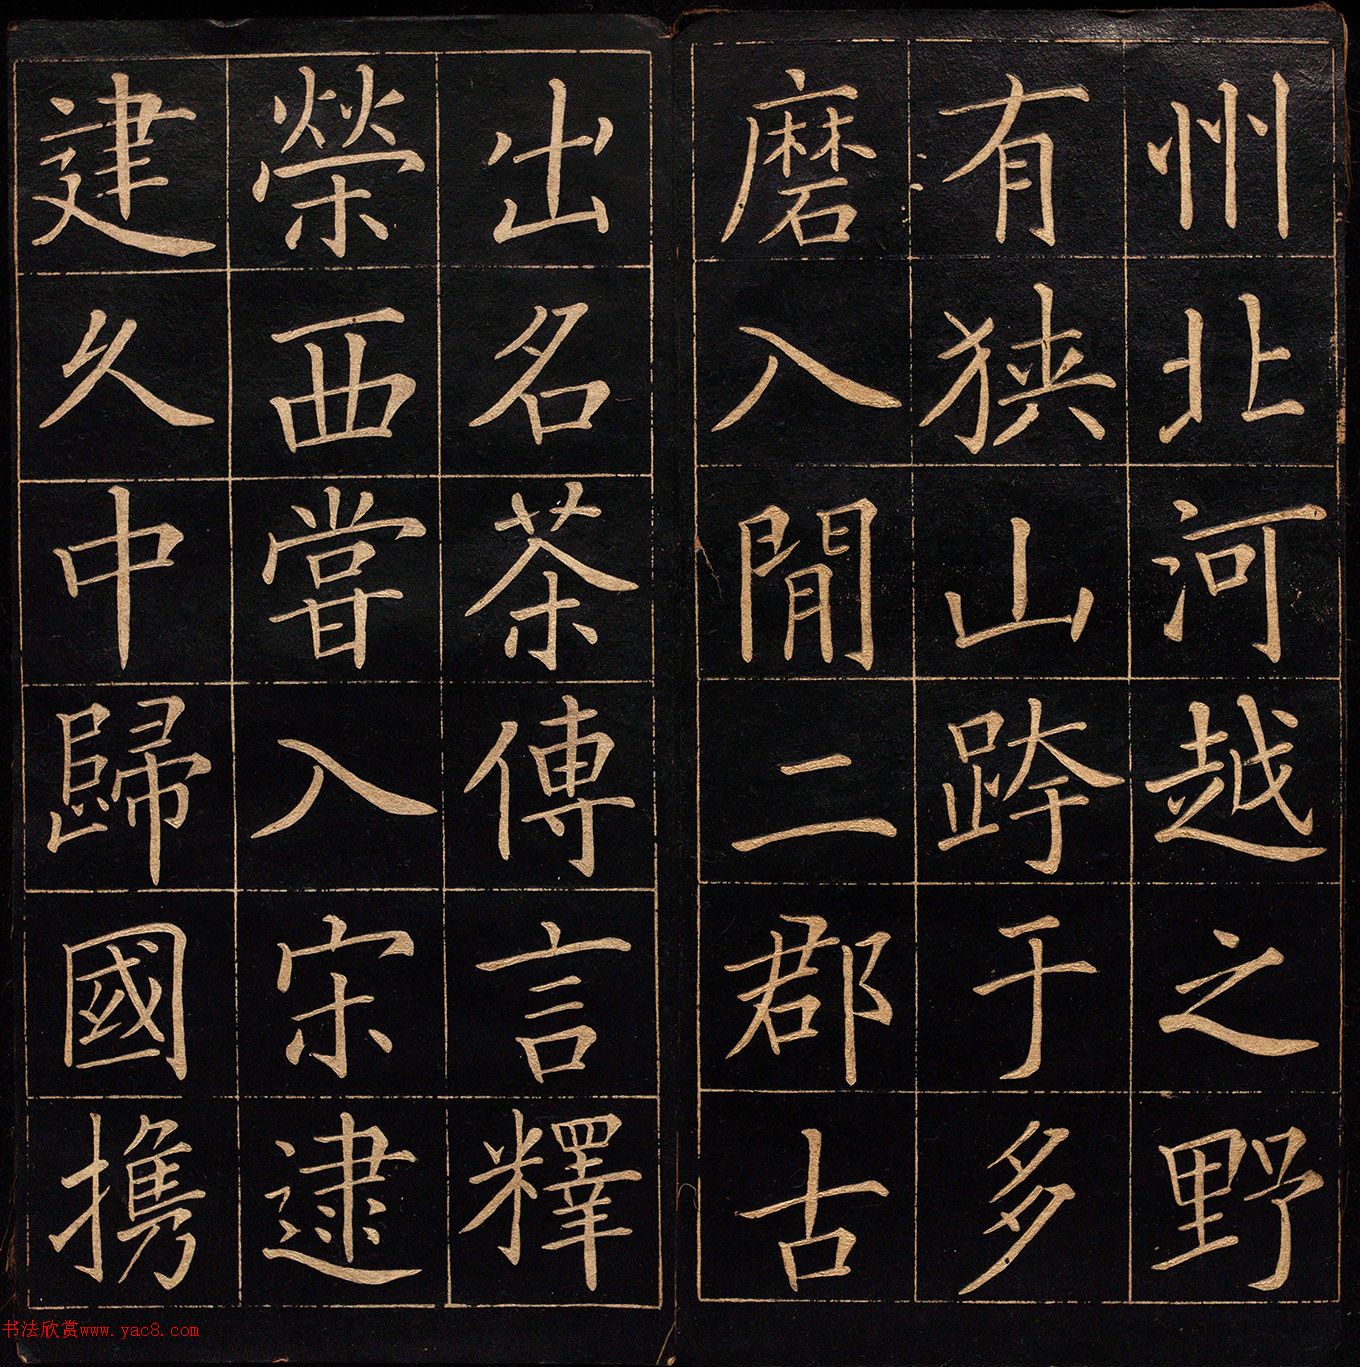 州北河越之野
有狹山跨于多
磨入間二郡古
出名茶傳言釋
榮西嘗入宋逮
建久中歸國携
书法欣赏www.yac8.com